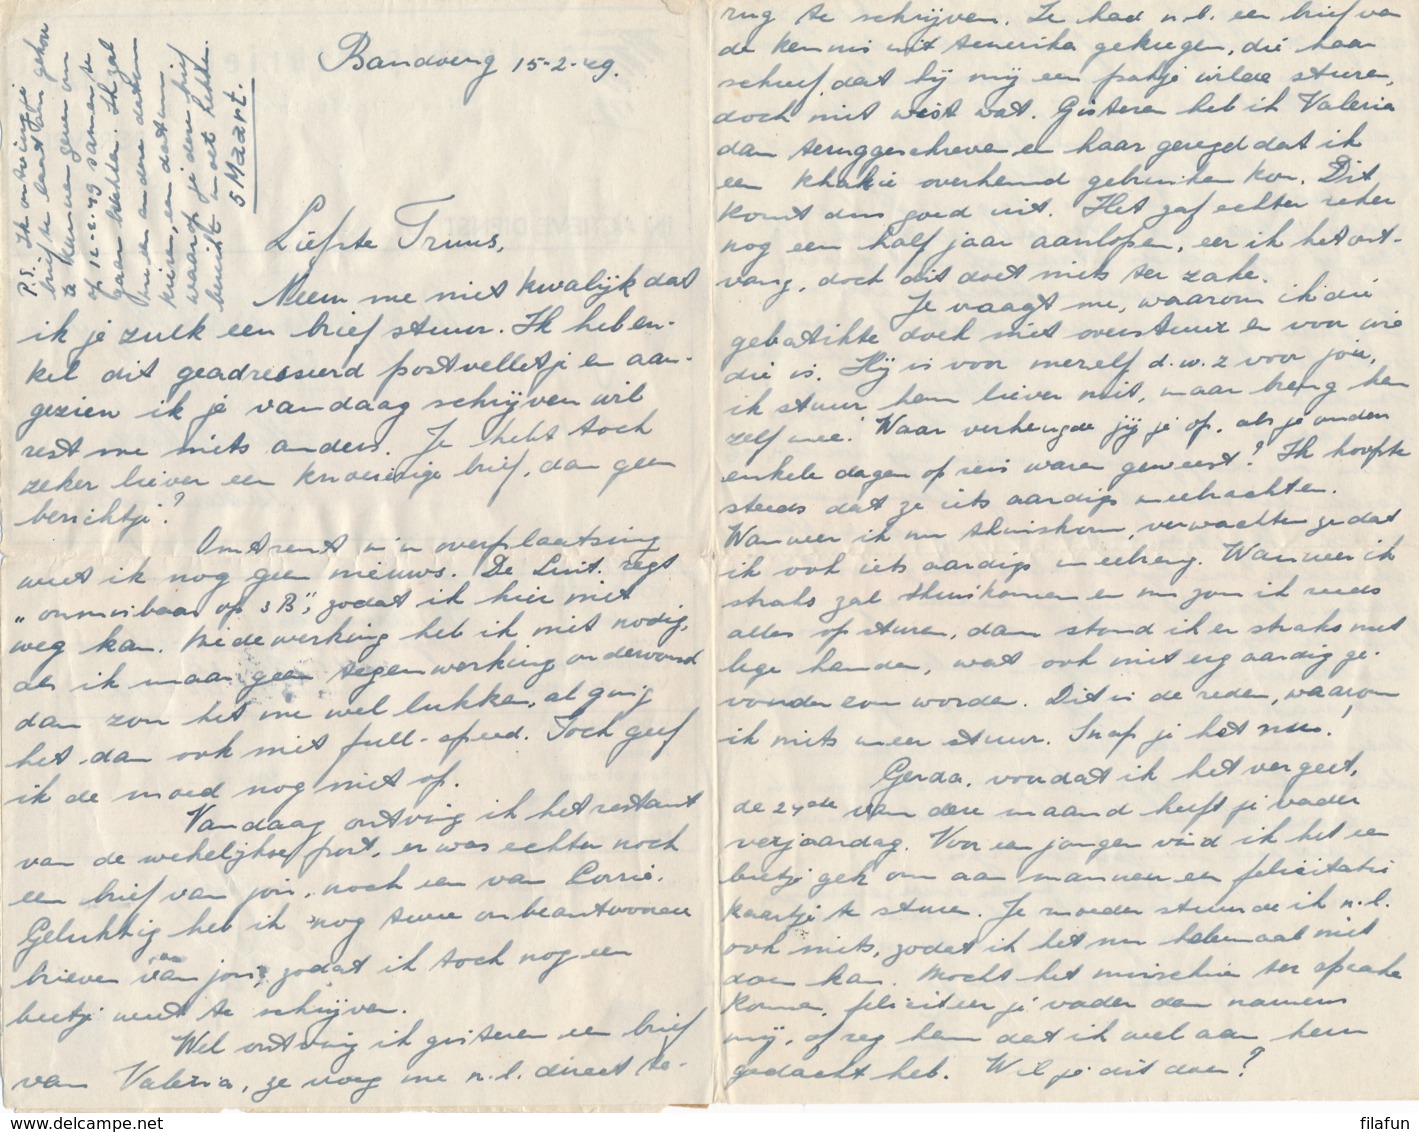 Bandoeng 15-2-'49.
P.S. Ik ontving je
briefje
te kunnen geven om
op 12-2-'49 samen te
gaan trachten. Ik zal
een andere datum
kiezen, een datum
waarop je deze brief
bereikt moet hebben.
5 Maart.
Liefste Truus,
Neem me niet kwalijk dat
ik je zulk een brief stuur. Ik heb en-
kel dit geadresseerd postvelletje en aan-
gezien ik je vandaag schrijven wil
rest me niets anders. Je hebt toch
zeker liever een knoeierige brief, dan geen
berichtje?
Omtrent m'n overplaatsing
weet ik nog geen nieuws. De Luit. zegt
"onmisbaar op 3 B", zodat ik hier niet
weg kan. Medewerking heb ik niet nodig,
als ik maar geen tegenwerking ondervond
dan zou het me wel lukken, al ging
het dan ook niet full-speed. Toch geef
ik de moed nog niet op.
Vandaag ontving ik het restant
van de wekelijkse post, er was echter noch
een brief van jou, noch een van Corrie.
Gelukkig heb ik nog twee onbeantwoorde
brieven van jou, zodat ik toch nog een
beetje weet te schrijven.
Wel ontving ik gisteren een brief
van Valeria, ze vroeg me n.l. direct te-
rug te schrijven. Ze had n.l. een brief van
de kennis uit Amerika gekregen, die haar
schreef, dat hij mij een pakje wilde sturen,
doch niet wist wat. Gisteren heb ik Valeria
dan teruggeschreven en haar gezegd dat ik
een khakie overhemd gebruiken kon. Dit
komt dus goed uit. Het zal echter zeker
nog een half jaar aanlopen, eer ik het ont-
vang, doch dit doet niets ter zake.
Je vraagt me, waarom ik die
gebatikte doek niet overstuur en voor wie
die is. Hij is voor mezelf d.w.z voor jou,
ik stuur hem liever niet, maar breng hem
zelf mee. Waar verheugde jij je op, als je ouders
enkele dagen op reis waren geweest? Ik hoopte
steeds dat ze iets aardigs meebrachten.
Wanneer ik nu thuiskom, verwachten ze dat
ik ook iets aardigs meebreng. Wanneer ik
straks zal thuiskomen en nu zou ik reeds
alles opsturen, dan stond ik er straks met
lege handen, wat ook niet erg aardig ge-
vonden zou worden. Dit is de reden, waarom
ik niets meer stuur. Snap je het nu!
Gerda, voordat ik het vergeet,
de 24ste van deze maand heeft je vader
verjaardag. Voor een jongen vind ik het een
beetje gek om aan mannen een felicitatie
kaartje te sturen. Je moeder stuurde ik n.l.
ook niets, zodat ik het nu helemaal niet
doen kan. Mocht het misschien ter sprake
komen, feliciteer je vader dan namens
mij, of zeg hem dat ik wel aan hem
gedacht heb. Wil je dit doen?
www.delcampe.net
filafun